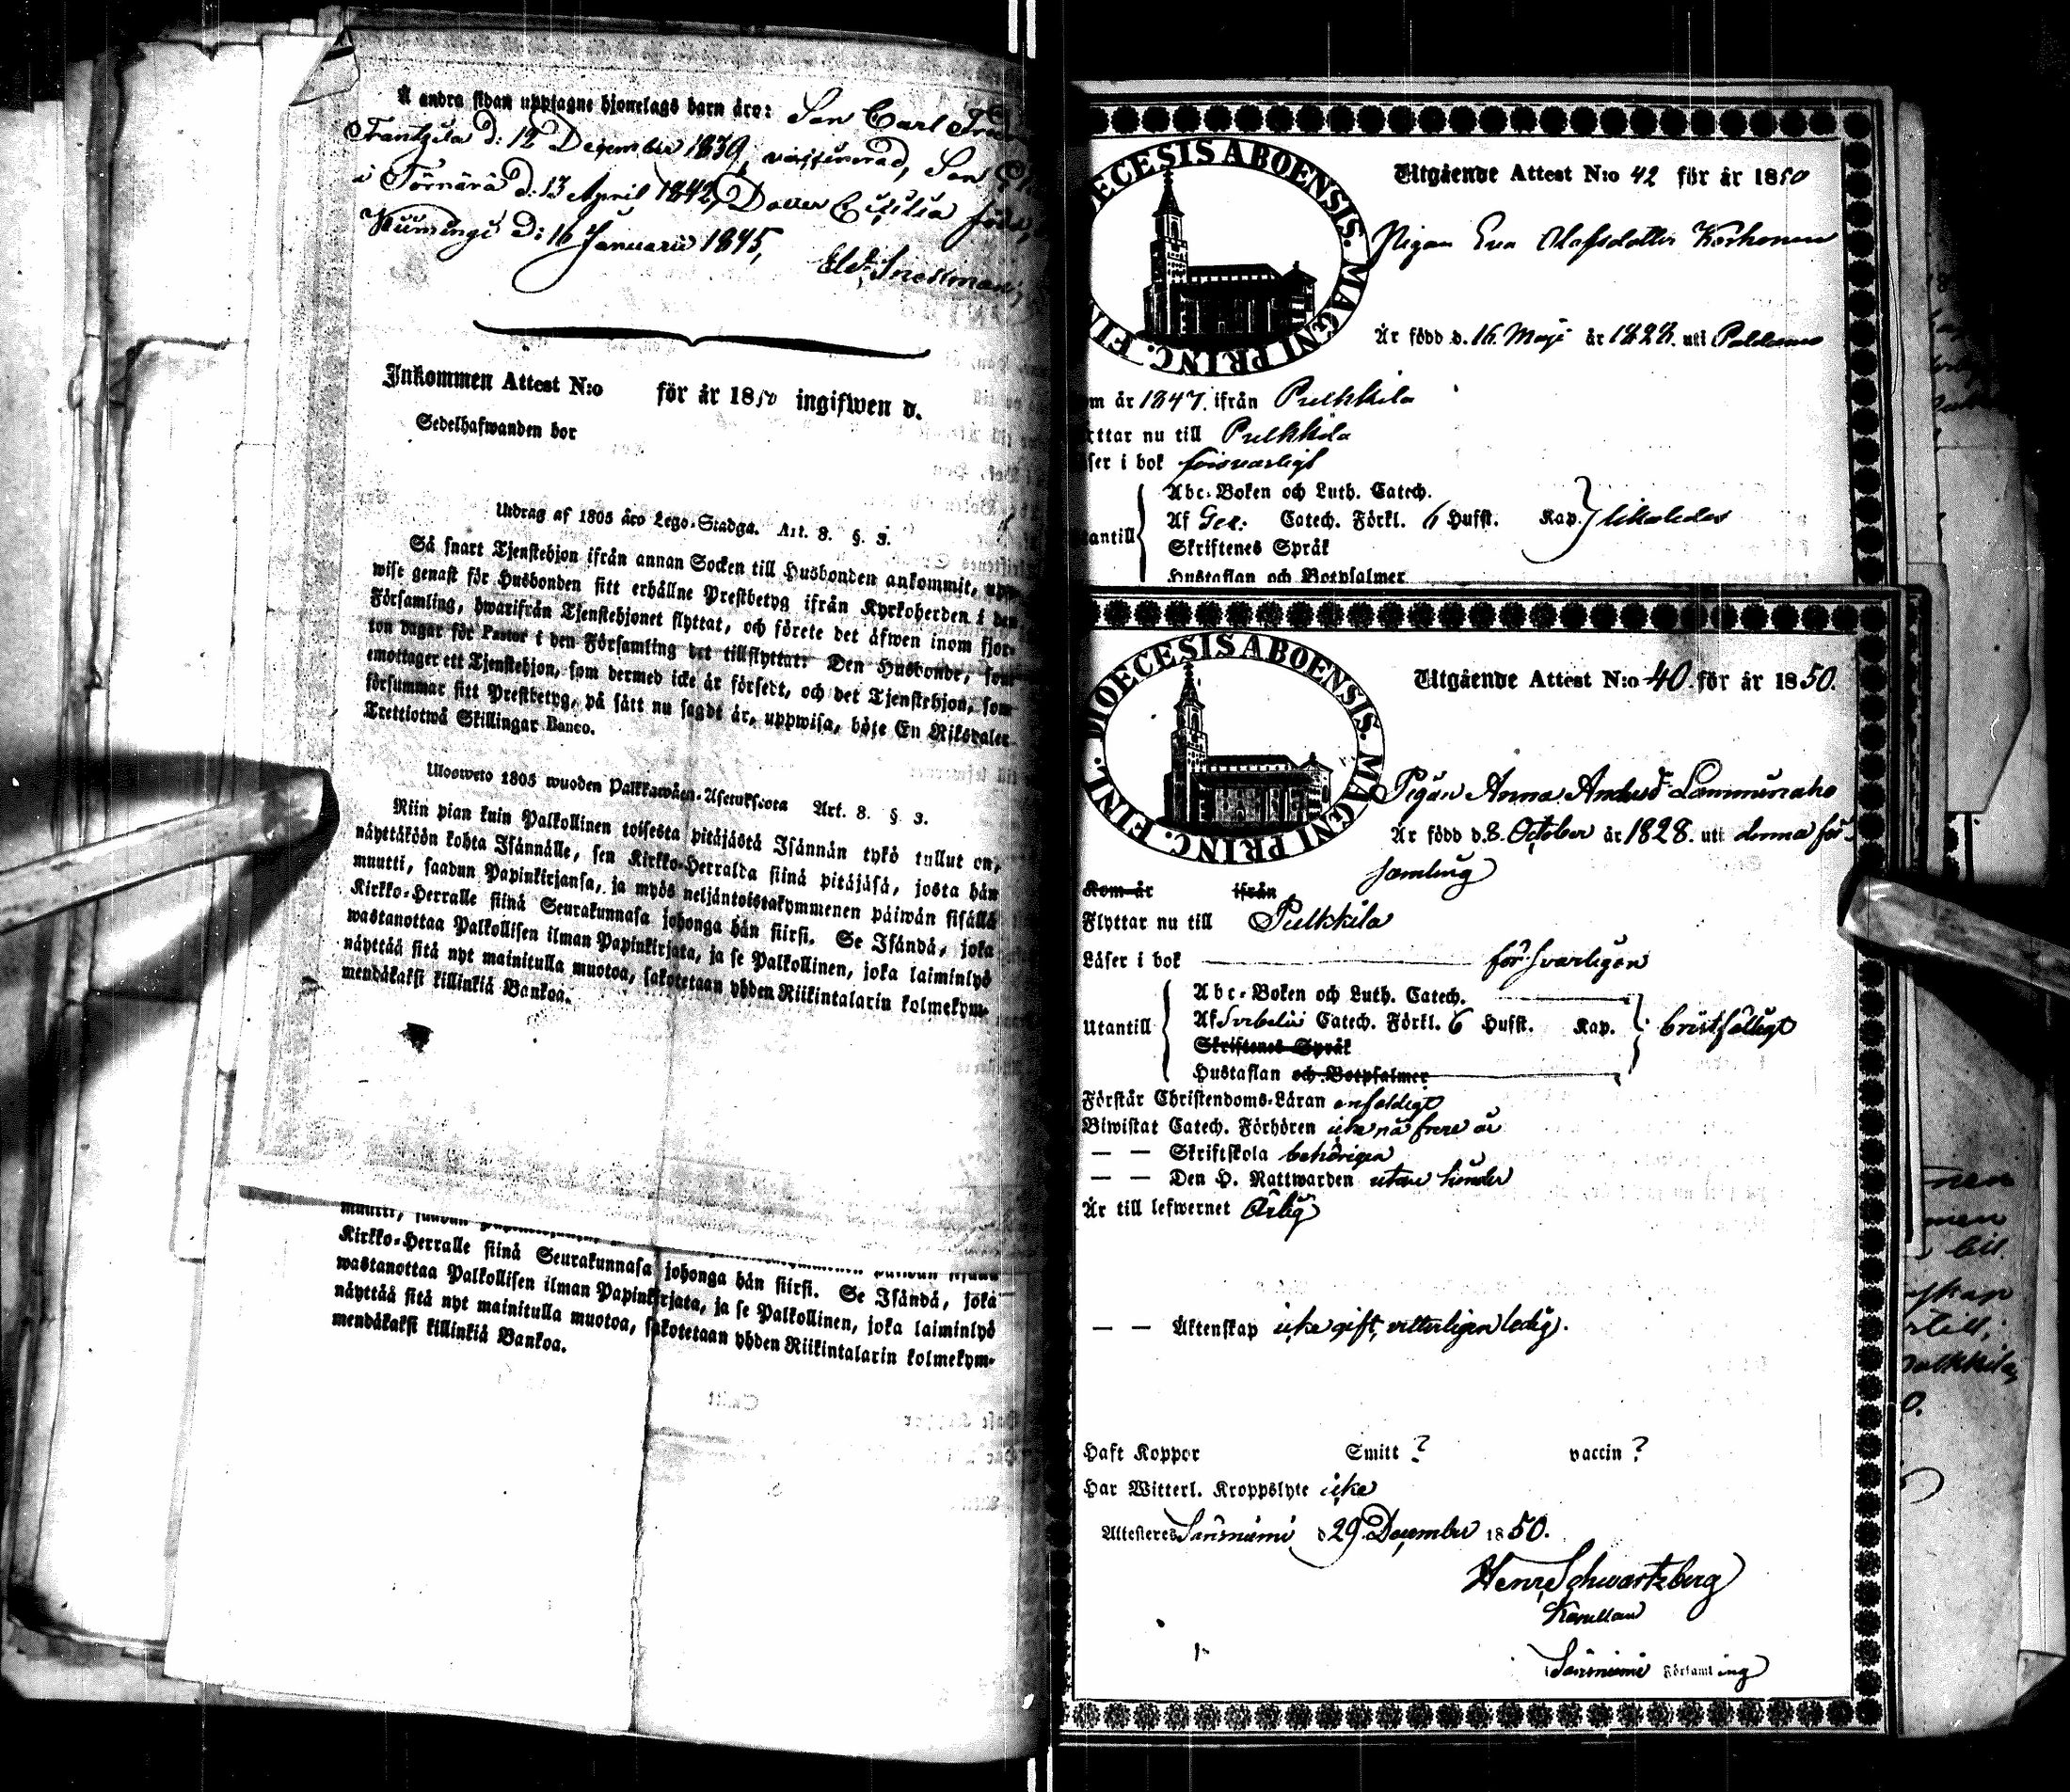 Å andra sidan upptagne hjonelags barn äro: Son Carl
Frantzila d: 12 December 1839, vaccinerad, Son
i Törnävä d: 13 April 1842, Dotter Cecilia född
Kiiminge d: 16 Januarii 1845,
Snellman
Inkommen Attest N:o för år 1850 ingifwen d.
Sedelhafwanden bor
Utdrag af 1805 åro Lego-Stadga. Art. 8. §. 3.
Så snart Tjenstehjon ifrån annan Socken till Husbonden ankommit, upp-
wise genast för Husbonden sitt erhållne Prestbetyg ifrån Kyrkoherden i den
Församling, hwarifrån Tjenstehjonet flyttat, och förete det äfwen inom fjor-
ton dagar för Pastor i den Församling det tillflyttat: Den Husbonde, som
emottager ett Tjenstehjon, som dermed icke är försedt, och det Tjenstehjon, som
försummar sitt Prestbetyg, på sätt nu sagdt är, uppwisa, böte En Riksdaler
Trettiotwå Skillingar Banco.
Ulosweto 1805 wuoden Palkkawäen-Asetuksesta Art. 8. § 3.
Niin pian kuin Palkollinen toisesta pitäjästä Isännän tykö tullut on,
näyttäköön kohta Isännälle, sen Kirkko-Herralda siinä pitäjäsä, josta hän
muutti, saadun Papinkirjansa, ja myös neljäntoistakymmenen päiwän sisällä
Kirkko-Herralle siinä Seurakunnasa johonga hän siirsi. Se Isändä, joka
wastanottaa Palkollisen ilman Papinkirjata, ja se Palkollinen, joka laiminlyö
näyttää sitä nyt mainitulla muotoa, sakotetaan yhden Riikintalarin kolmekym-
mendäkaksi killinkiä Bankoa.
Kirkko-Herralle siinä Seurakunnasa johonga hän siirsi. Se Isändä, joka
wastanottaa Palkollisen ilman Papinkirjata, ja se Palkollinen, joka laiminlyö
näyttää sitä nyt mainitulla muotoa, sakotetaan yhden Riikintalarin kolmekym-
mendäkaksi killinkiä Bankoa.
DIOECESIS ABOENSIS. MAGNI PRINC. FINL.
Utgående Attest N:o 42 för år 1850
Pigan Eva Olofsdotter Korhonen
Är född d. 16. Maji år 1828. uti Paldamo
om år 1847. ifrån Pulkkila
ttar nu till Pulkkila
ser i bok försvarligt
Abc-Boken och Luth. Catech.
Af Catech. Förkl. 6 Hufst. Kap. likaledes
tantill
Skriftenes Språk
Hustaflan och Botpsalmer
DIOECESIS ABOENSIS. MAGNI PRINC. FINL.
Utgående Attest N:o 40. för år 1850.
Pigan Anna Andersd. Lamminaho
Är född d. 8. October år 1828. uti denna för-
samling
Kom år ifrån
Flyttar nu till Pulkkila
Läser i bok försvarligen
Abc-Boken och Luth. Catech.
Utantill Af Svebelii Catech. Förkl. 6 Hufst. Kap. bristfälligt
Skriftenes Språk
Hustaflan och Botpsalmer
Förstår Christendoms-Läran enfaldigt
Biwistat Catech. Förhören icke på flere år
— — Skriftskola behörigen
— — Den H. Nattwarden utan hinder
Är till lefwernet Ärlig
— — Äktenskap icke gift, vitterligen ledig.
Haft Koppor Smitt ? vaccin ?
Har Witterl. Kroppslyte icke
Attesteres Säräisniemi d 29 December 1850.
Henr. Schwartzberg
Kapellan
Säräisniemi Församling